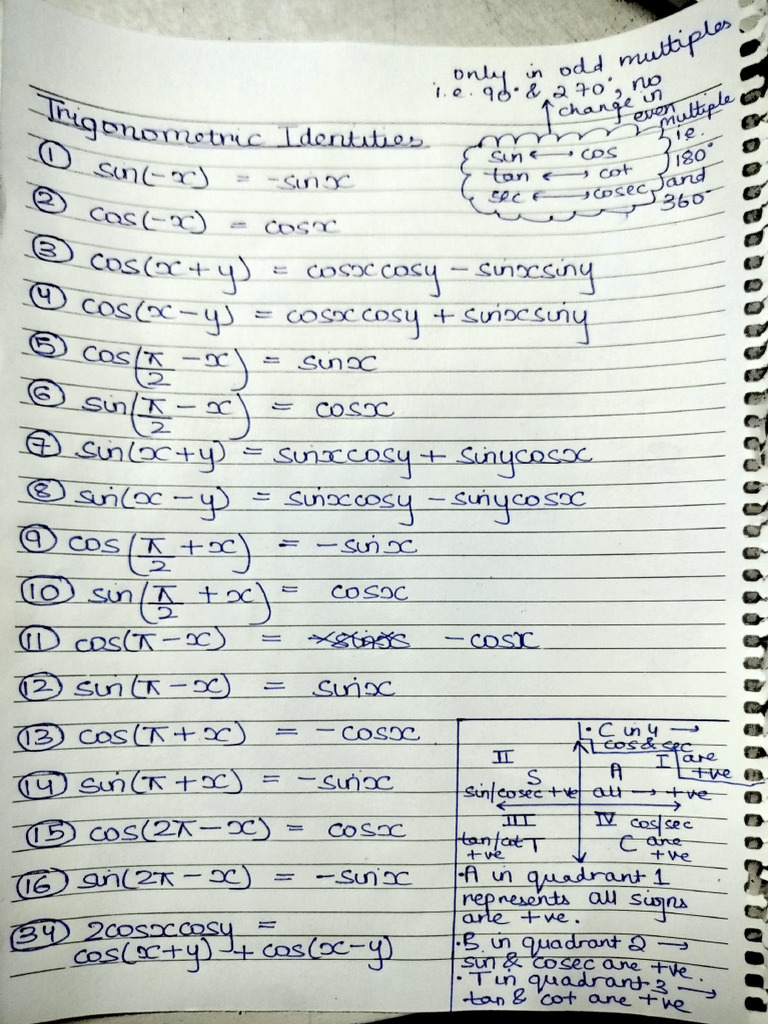 only in odd multiples
i.e. 90° & 270°, no
change in
even
multiple
i.e.
180°
and
360°
sin ⟷ cos
tan ⟷ cot
sec ⟷ cosec
Trigonometric Identities
① sin(-x) = -sinx
② cos(-x) = cosx
③ cos(x+y) = cosxcosy - sinxsiny
④ cos(x-y) = cosxcosy + sinxsiny
⑤ cos(π/2 - x) = sinx
⑥ sin(π/2 - x) = cosx
⑦ sin(x+y) = sinxcosy + sinycosx
⑧ sin(x-y) = sinxcosy - sinycosx
⑨ cos(π/2 + x) = -sinx
⑩ sin(π/2 + x) = cosx
⑪ cos(π-x) = -cosx
⑫ sin(π-x) = sinx
⑬ cos(π+x) = -cosx
⑭ sin(π+x) = -sinx
⑮ cos(2π-x) = cosx
⑯ sin(2π-x) = -sinx
㉞ 2cosxcosy =
cos(x+y) + cos(x-y)
• C in 4 →
cos & sec
are
+ve
II
S
sin/cosec +ve
I
A
all → +ve
III
tan/cot T
+ve
IV cos/sec
C are
+ve
• A in quadrant 1
represents all signs
are +ve.
• B in quadrant 2 →
sin & cosec are +ve.
• T in quadrant 3 →
tan & cot are +ve